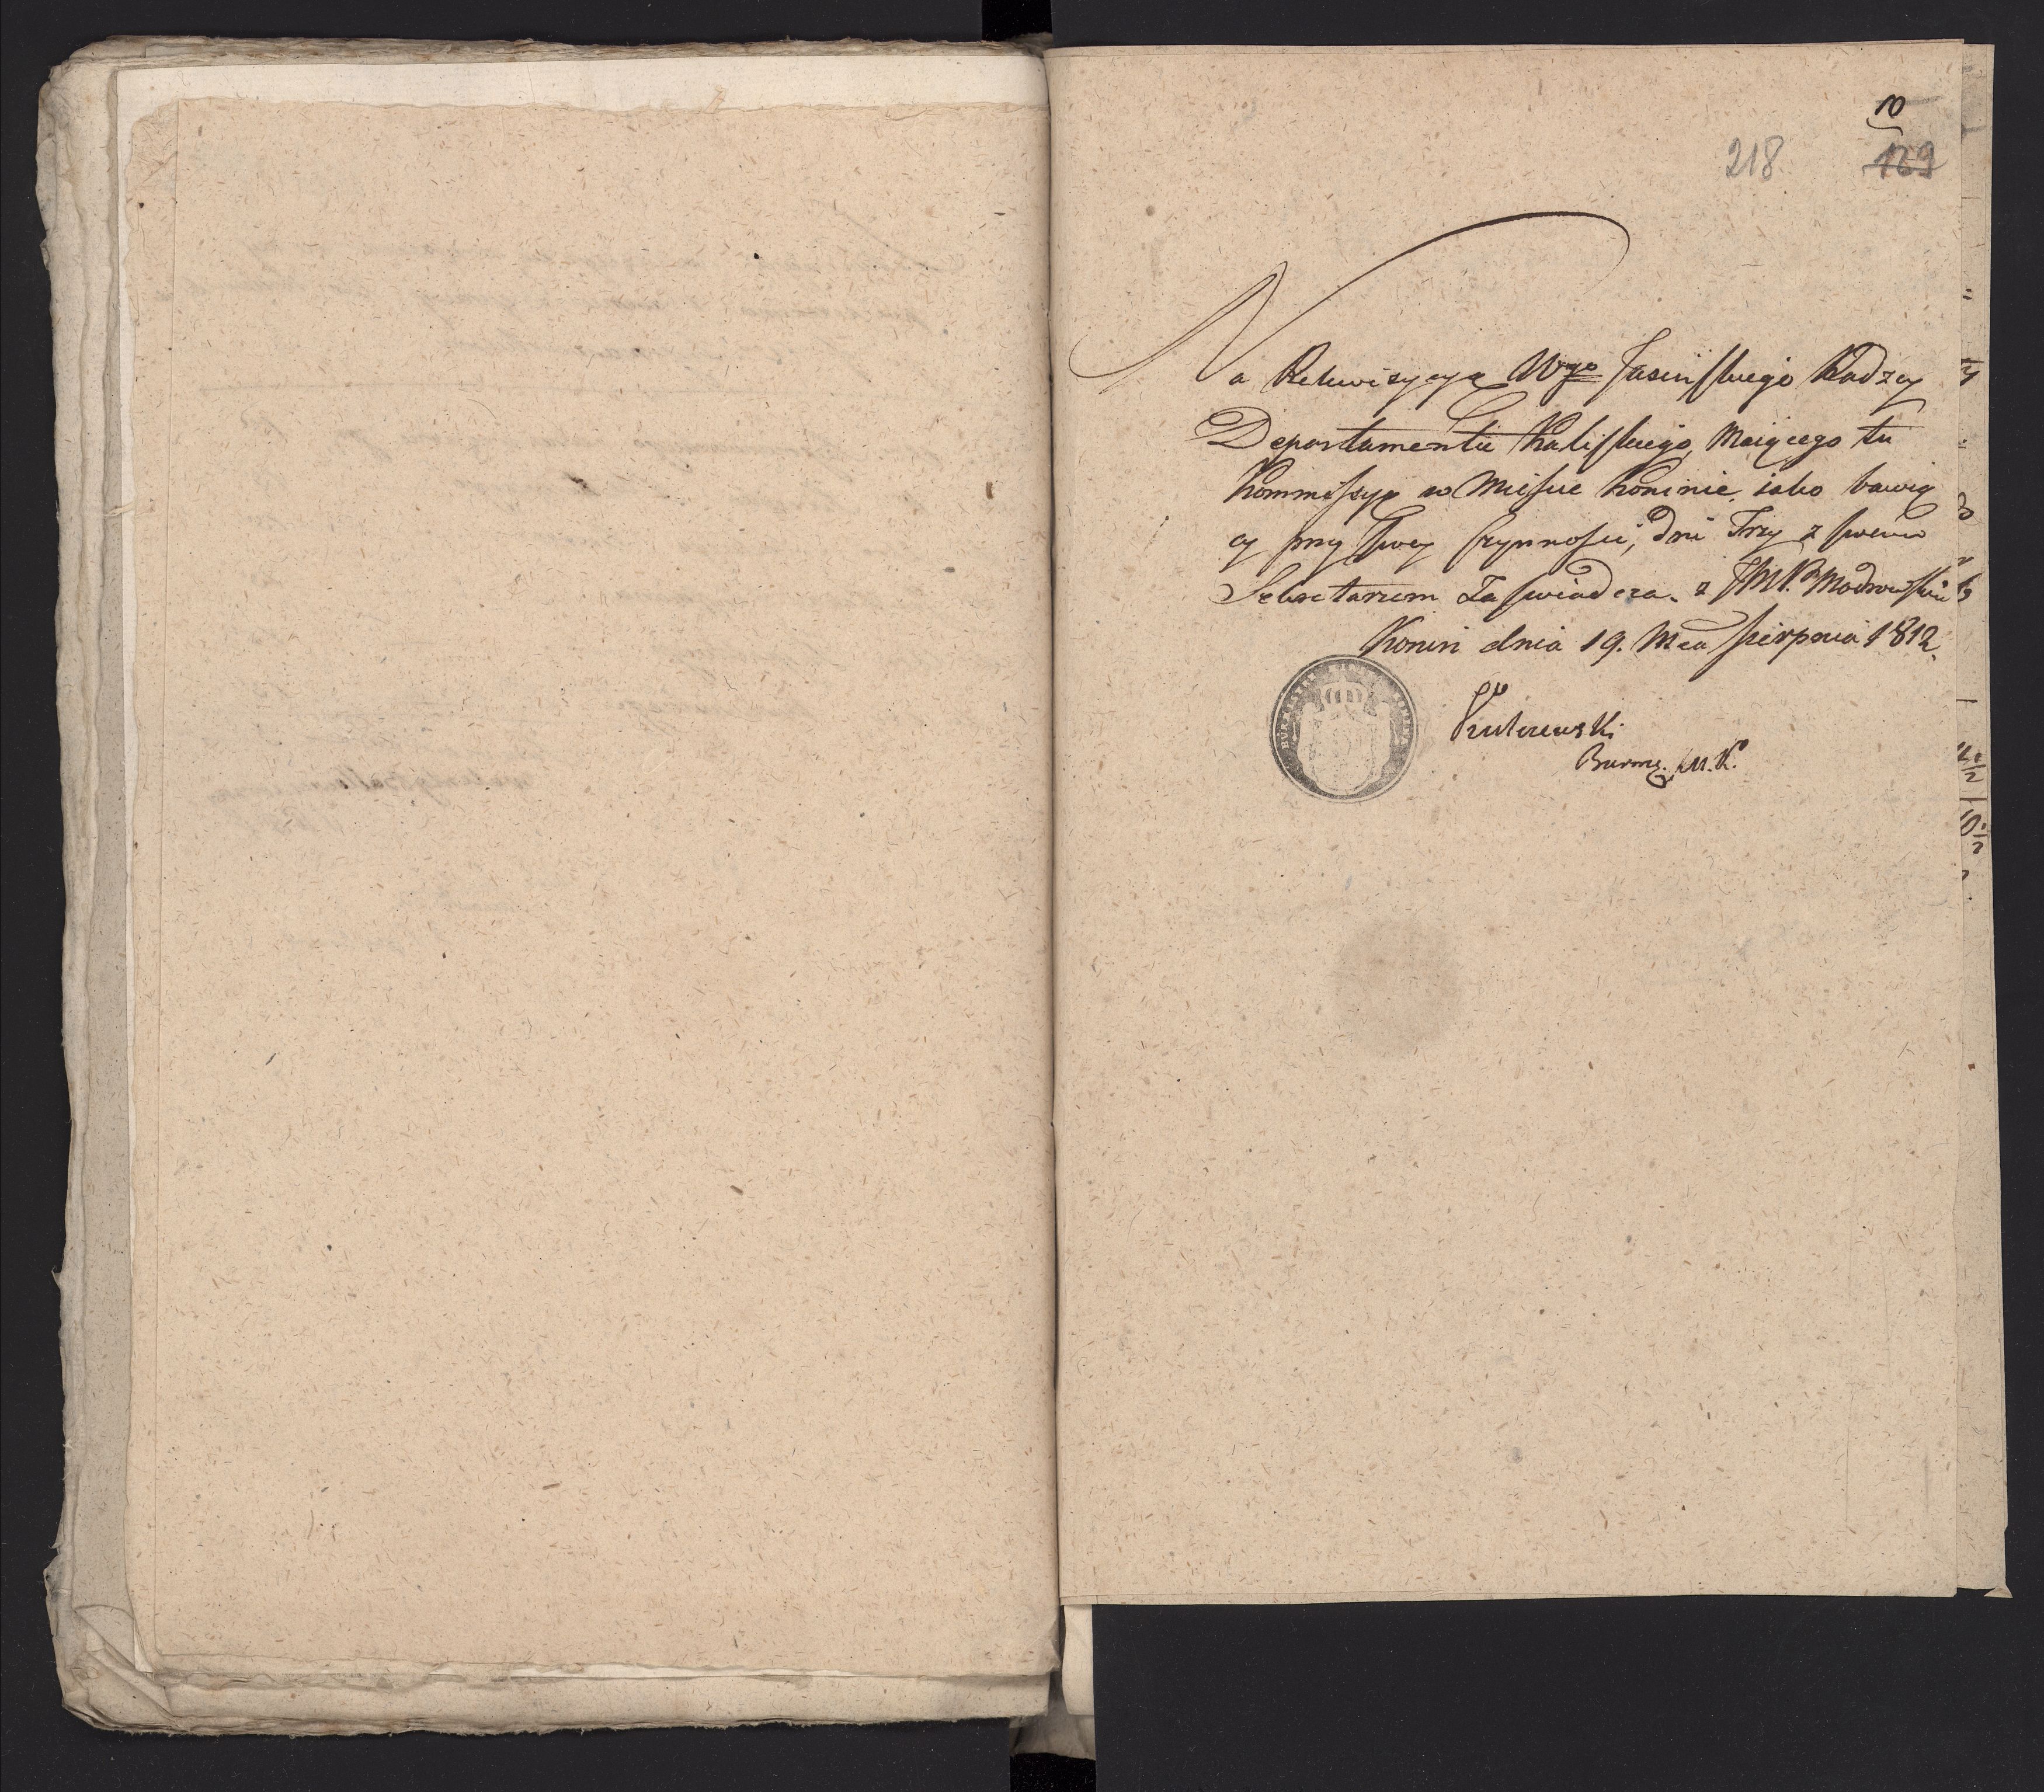 10
218 129
Na Rekwizycyą Wgo Jasińskiego Radzcy
Departamentu Kaliskiego, Maiącego tu
Kommissyą w Mieście Koninie iako bawią
cy przy swey Czynności, dni Trzy z swem
Sekretarzem Zaświadcza. z JMP. Modrowskim
Konin dnia 19. Mca sierpnia 1812.
Burm. M. K.